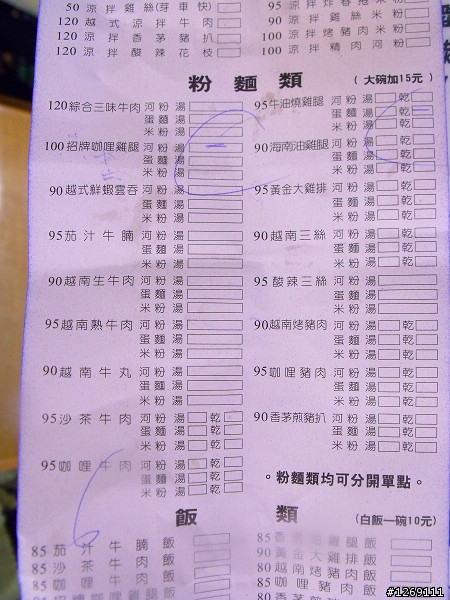 50 涼拌雞絲(芽車快)
120 越式涼拌牛肉
120 涼拌香茅豬扒
120 涼拌酸辣花枝
90 涼拌雞絲米粉
100 涼拌烤豬肉米粉
100 涼拌精肉河粉
粉麵類 (大碗加15元)
120 綜合三味牛肉 河粉湯
蛋麵湯
米粉湯
100 招牌咖哩雞腿 河粉湯
蛋麵湯
米粉湯
90 越式鮮蝦雲吞 河粉湯
蛋麵湯
米粉湯
95 茄汁牛腩 河粉湯
蛋麵湯
米粉湯
90 越南生牛肉 河粉湯
蛋麵湯
米粉湯
95 越南熟牛肉 河粉湯
蛋麵湯
米粉湯
90 越南牛丸 河粉湯
蛋麵湯
米粉湯
95 沙茶牛肉 河粉湯 乾
蛋麵湯 乾
米粉湯 乾
95 咖哩牛肉 河粉湯 乾
蛋麵湯 乾
米粉湯 乾
95 牛油燒雞腿 河粉湯 乾
蛋麵湯 乾
米粉湯 乾
90 海南油雞腿 河粉湯 乾
蛋麵湯 乾
米粉湯 乾
95 黃金大雞排 河粉湯 乾
蛋麵湯 乾
米粉湯 乾
90 越南三絲 河粉湯 乾
蛋麵湯 乾
米粉湯 乾
95 酸辣三絲 河粉湯
蛋麵湯
米粉湯
90 越南烤豬肉 河粉湯 乾
蛋麵湯 乾
米粉湯 乾
95 咖哩豬肉 河粉湯 乾
蛋麵湯 乾
米粉湯 乾
90 香茅煎豬扒 河粉湯 乾
蛋麵湯 乾
米粉湯 乾
。粉麵類均可分開單點。
飯類 (白飯一碗10元)
85 茄汁牛腩飯
85 沙茶牛肉飯
85 咖哩牛肉飯
招牌咖哩雞腿飯
85 雞腿飯
90 黃金大雞排飯
80 越南烤豬肉飯
85 咖哩豬肉飯
80 香茅煎豬扒
#1269111